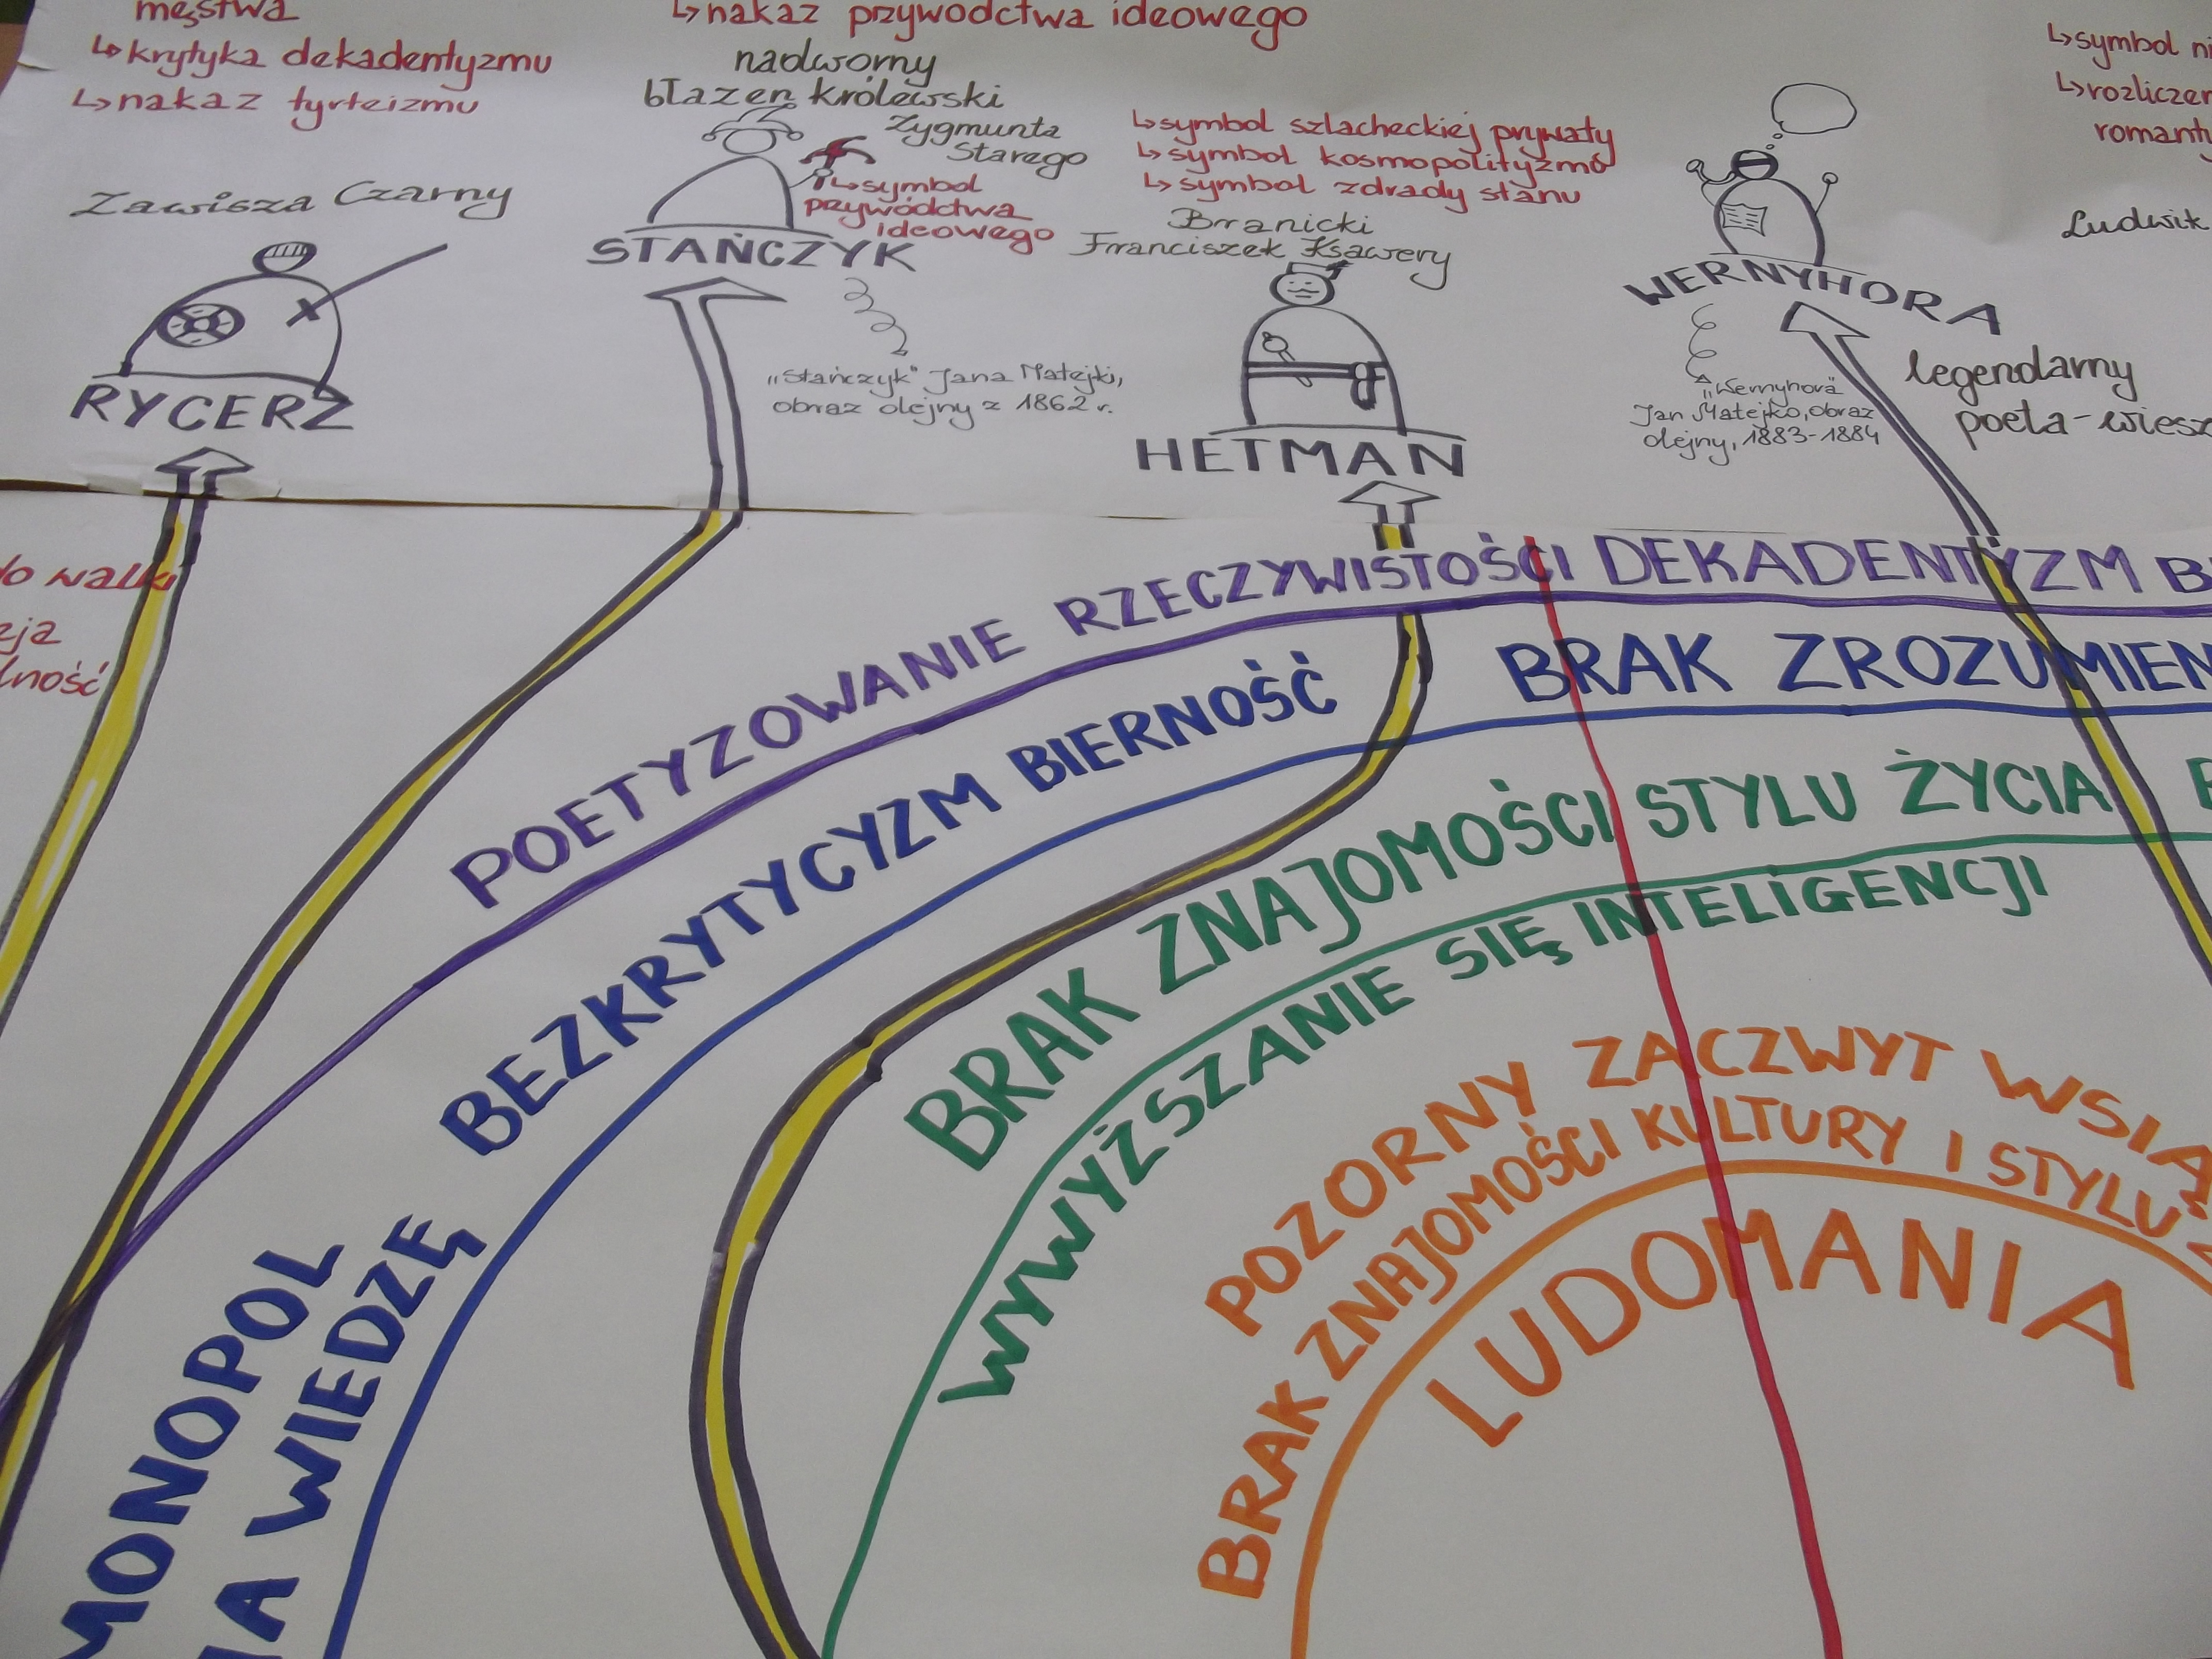 męstwa
↳krytyka dekadentyzmu
↳nakaz tyrteizmu
Zawisza Czarny
RYCERZ
↳nakaz przywództwa ideowego
nadworny
błazen królewski
Zygmunta
Starego
↳symbol
przywództwa
ideowego
STAŃCZYK
„Stańczyk" Jana Matejki,
obraz olejny z 1862 r.
↳symbol szlacheckiej prywaty
↳symbol kosmopolityzmu
↳symbol zdrady stanu
Branicki
Franciszek Ksawery
HETMAN
WERNYHORA
„Wernyhora"
Jan Matejko, obraz
olejny, 1883-1884
↳symbol
romant
Ludwik
legendarny
poeta-wiesz
do walki
cja
lność
POETYZOWANIE RZECZYWISTOŚCI DEKADENTYZM B
BEZKRYTYCYZM BIERNOŚĆ
BRAK ZROZUMIEN
MONOPOL
NA WIEDZĘ
BRAK ZNAJOMOŚCI STYLU ŻYCIA
WYWYŻSZANIE SIĘ INTELIGENCJI
POZORNY ZACZWYT WSIĄ
BRAK ZNAJOMOŚCI KULTURY I STYLU
LUDOMANIA